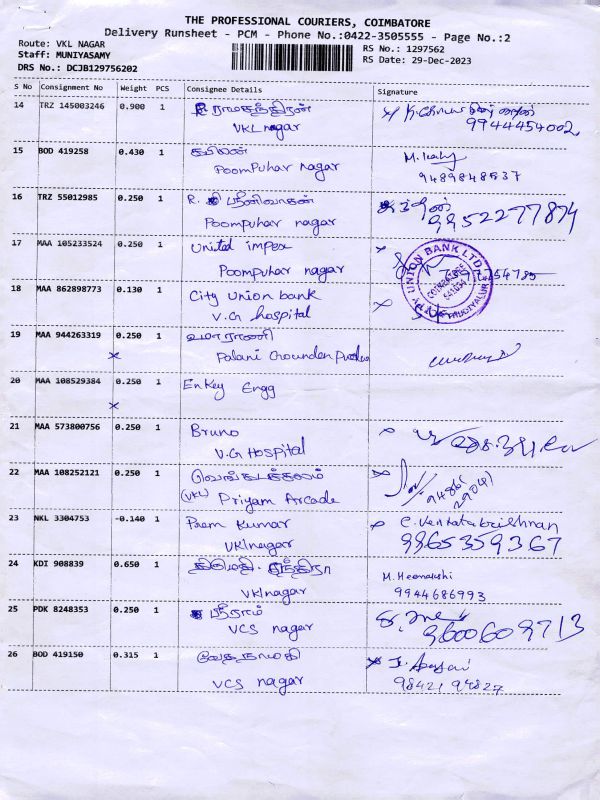 THE PROFESSIONAL COURIERS, COIMBATORE
Delivery Runsheet - PCM - Phone No.:0422-3505555 - Page No.:2
Route: VKL NAGAR
RS No.: 1297562
Staff: MUNIYASAMY
RS Date: 29-Dec-2023
DRS No.: DCJB129756202
S No Consignment No Weight PCS Consignee Details Signature
14 TRZ 145003246 0.900 1 ராமசந்திரன்
VKL nagar 9944454002
15 BOD 419258 0.430 1
Poompuhar nagar 9489848537
16 TRZ 55012985 0.250 1 R. ஸ்ரீனிவாசன்
Poompuhar nagar 9952277874
17 MAA 105233524 0.250 1 United impex
Poompuhar nagar
UNION BANK LTD
18 MAA 862898773 0.130 1 City Union bank
V.G hospital
19 MAA 944263319 0.250 1 உமாராணி
Palani Gounden
20 MAA 108529384 0.250 1 EnKey Engg
21 MAA 573800756 0.250 1 Bruno
V.G Hospital
22 MAA 108252121 0.250 1 வெங்கடாச்சலம்
(VKL) Priyam Arcade
23 NKL 3304753 -0.140 1 Prem Kumar C. Venkatakrishnan
VKlnagar 9865359367
24 KDI 908839 0.650 1 M. Meenakshi
VKlnagar 9944686993
25 PDK 8248353 0.250 1 ஸ்ரீராம்
VCS nagar 9600609713
26 BOD 419150 0.315 1
VCS nagar 98421 94827